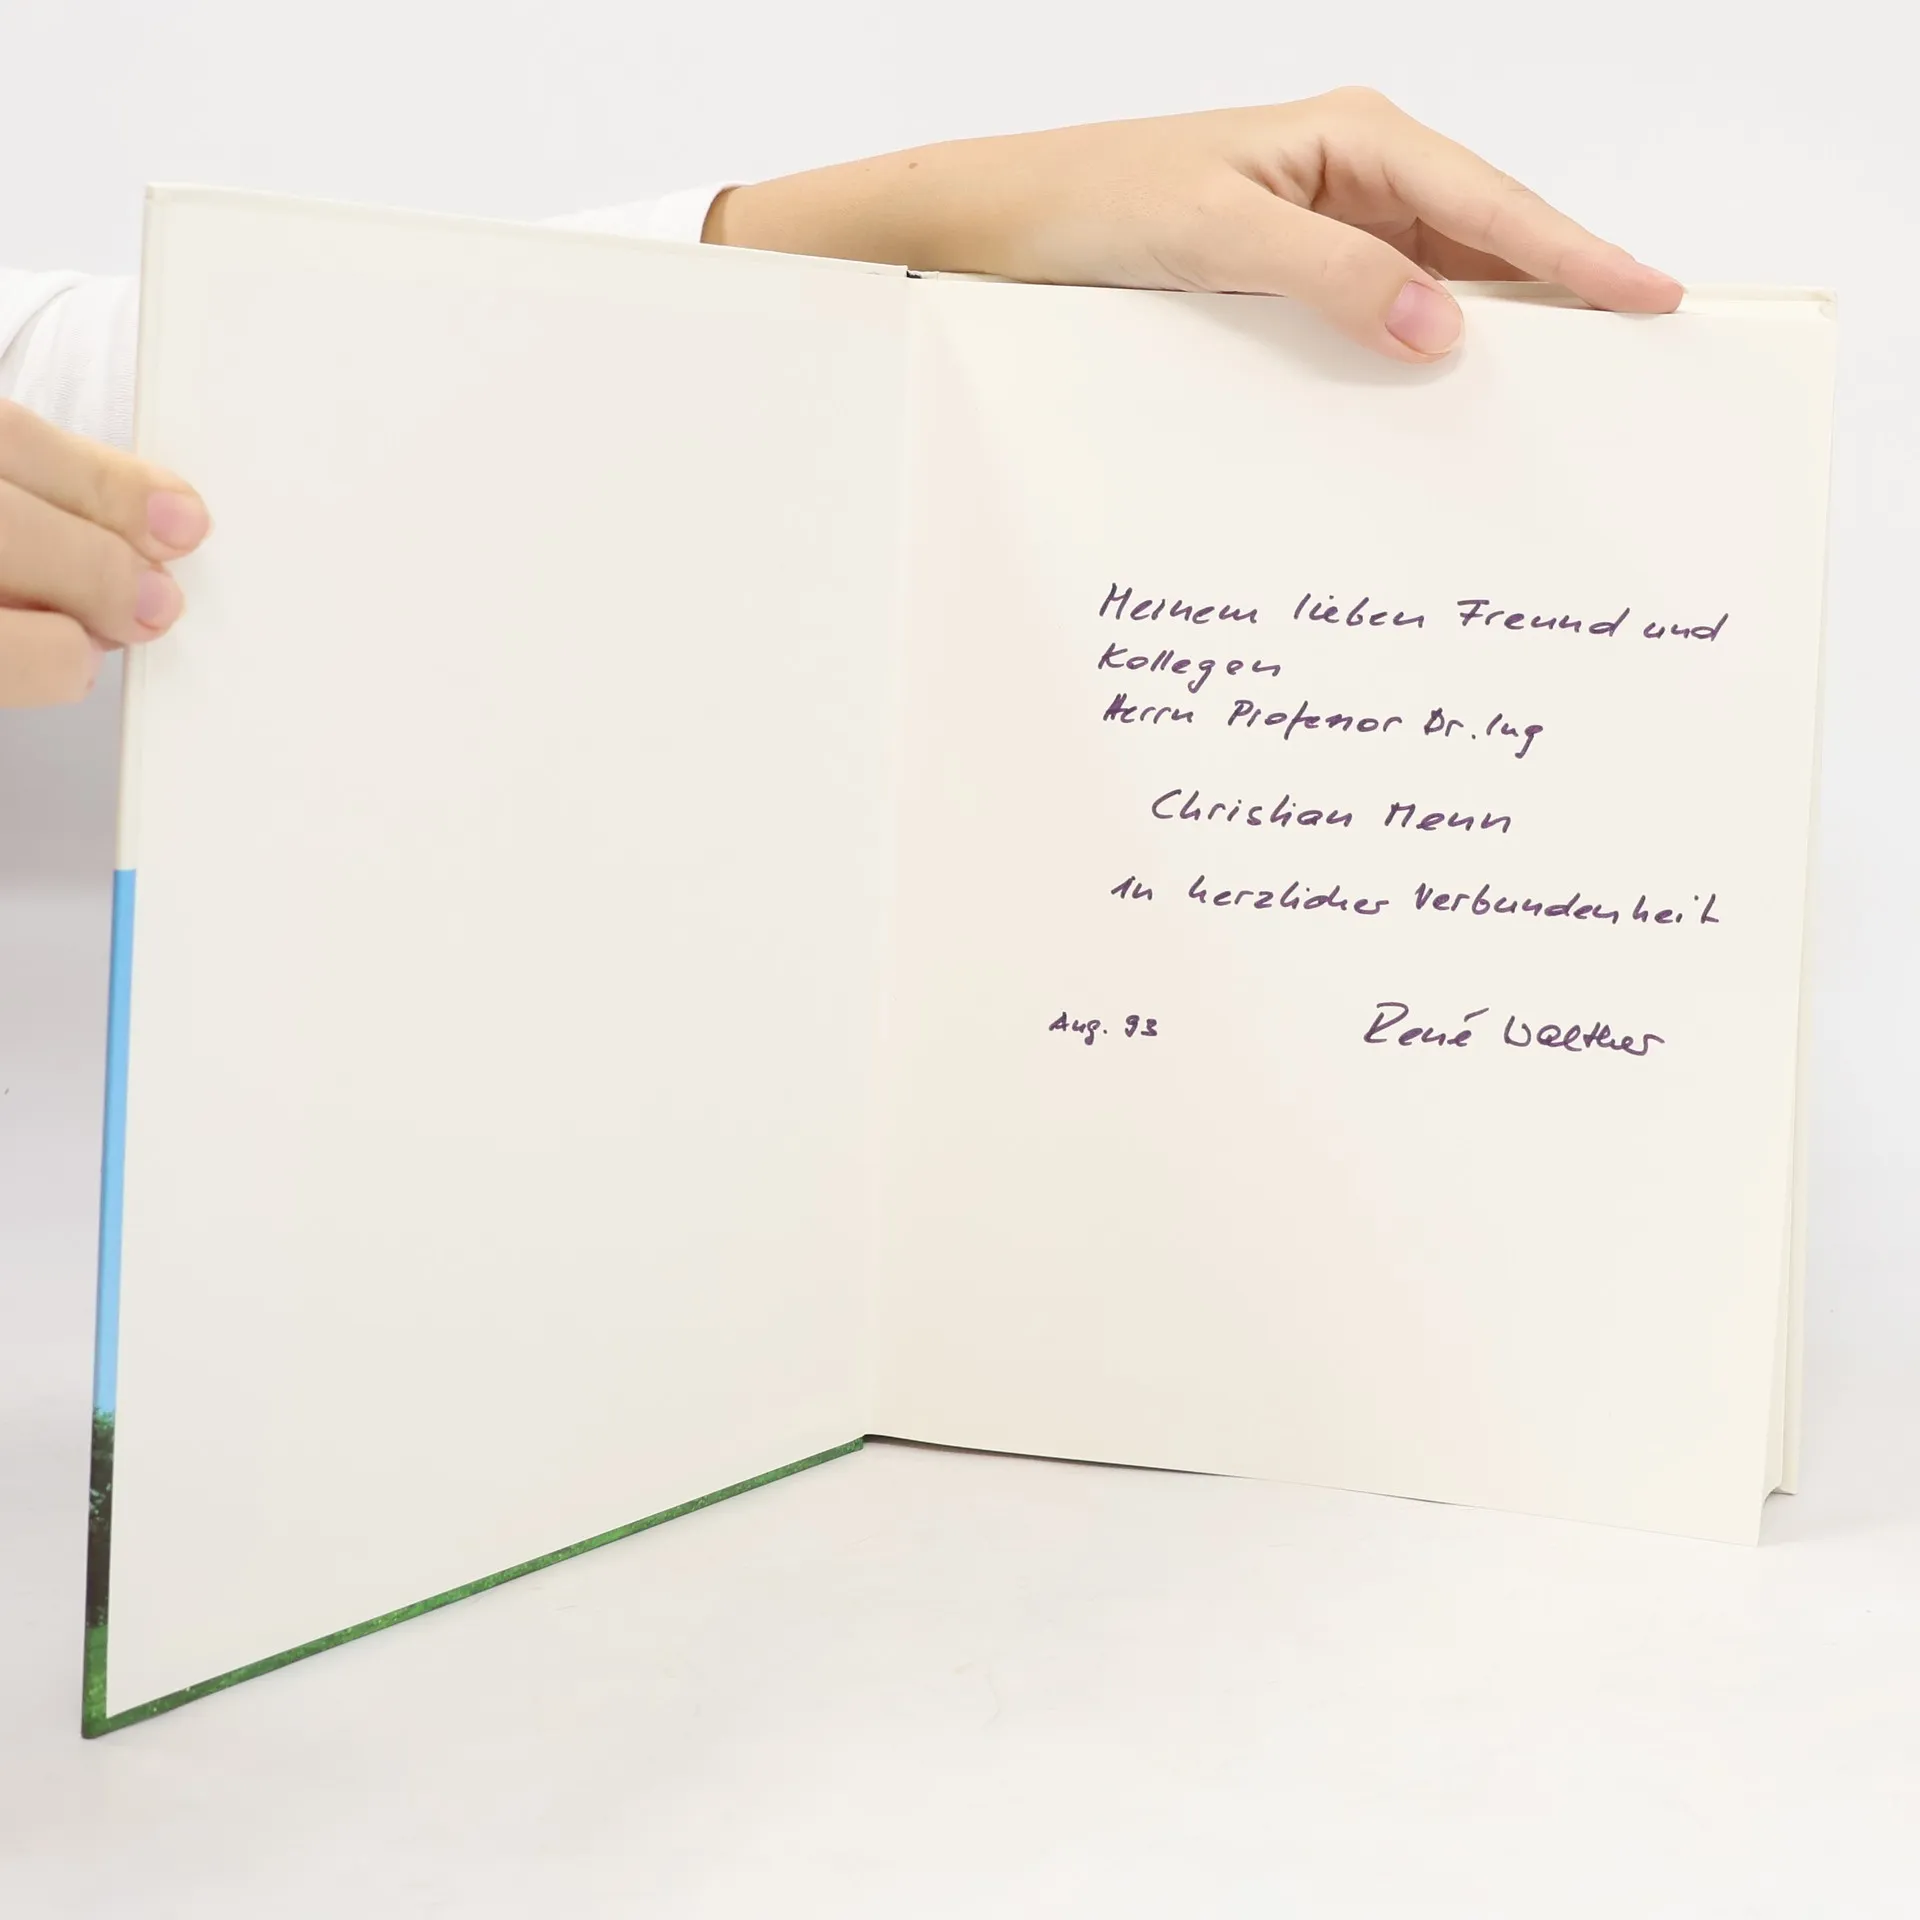 Meinem lieben Freund und
Kollegen
Herrn Professor Dr. Ing
Christian Menn
in herzlicher Verbundenheit
Aug. 93 René Walther